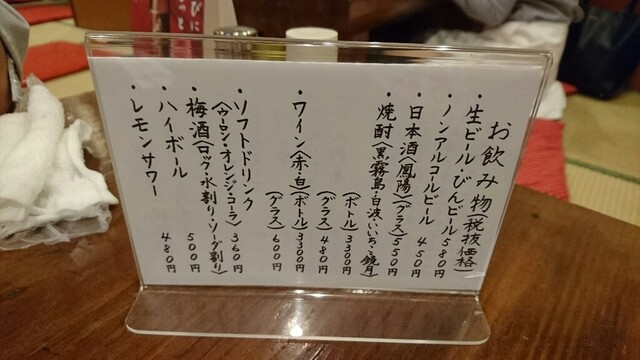 お飲み物(税抜価格)
・生ビール・びんビール 580円
・ノンアルコールビール 450円
・日本酒〈鳳陽〉(グラス) 550円
・焼酎〈黒霧島・白波・いいちこ・鏡月〉
(ボトル) 3300円
(グラス) 480円
・ワイン〈赤・白〉(ボトル) 3300円
(グラス) 600円
・ソフトドリンク 360円
〈ウーロン・オレンジ・コーラ〉
・梅酒〈ロック・水割り・ソーダ割り〉
500円
・ハイボール
・レモンサワー 480円